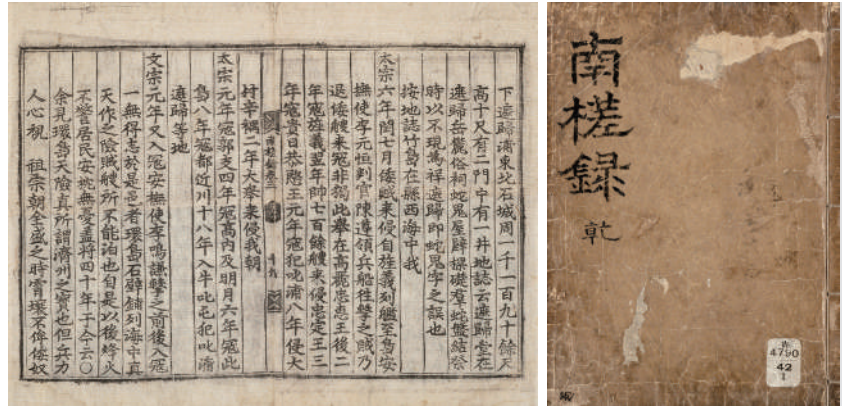 下遮歸浦東北石城周一千一百九十餘尺
高十尺有二門中有一井地誌云遮歸堂在
遮歸岳麓俗祠蛇鬼屋壁樑礎羣蛇盤結祭
時以不現爲祥遮歸即蛇鬼字之誤也
按地誌竹島在縣西海中我
太宗六年閏七月倭賊来侵自旌義列艦至島安
撫使李元恒判官陳遵領兵船往擊之賊乃
退倭艘来冦非獨此擧在高麗忠惠王後二
年冦旌義翌年帥七百餘艘来侵忠定王三
年冦貴日恭愍王元年冦犯叱浦八年侵大
南槎錄卷三
村辛禑二年大擧来侵我朝
太宗元年冦郭支四年冦高內及明月六年冦此
島八年冦都近川十八年入牛叱屯犯叱浦
遮歸等地
文宗元年又入冦安撫使李鳴謙擊之前後入冦
一無得志於是邑者環島石壁鋪列海中真
天作之險賊艘所不能泊也自是以後烽火
不警居民安枕無憂盖將四十年于今云○
余見環島天險真所謂濟州之寶也但兵力
人心視 祖宗朝全盛之時霄壤不侔倭奴
南槎録
乹
4790
42
1